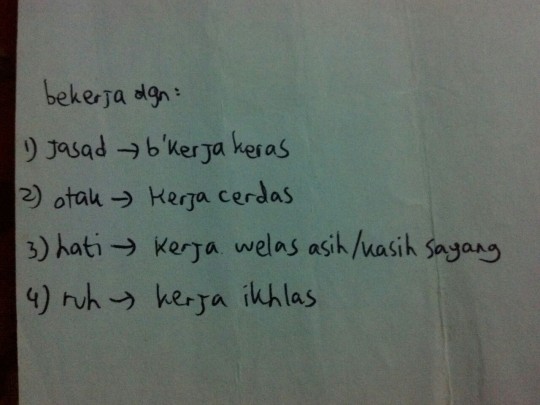 bekerja dgn:
1) Jasad → b'kerja keras
2) otak → kerja cerdas
3) hati → kerja welas asih/kasih sayang
4) ruh → kerja ikhlas